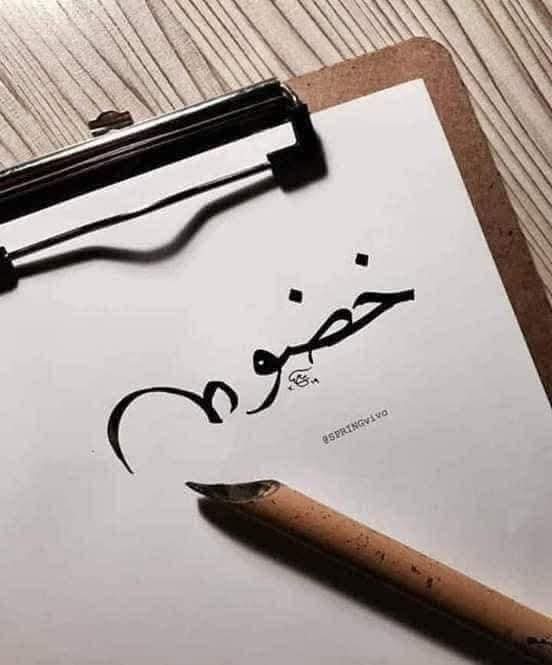 خضوع
@SPRINGvivo